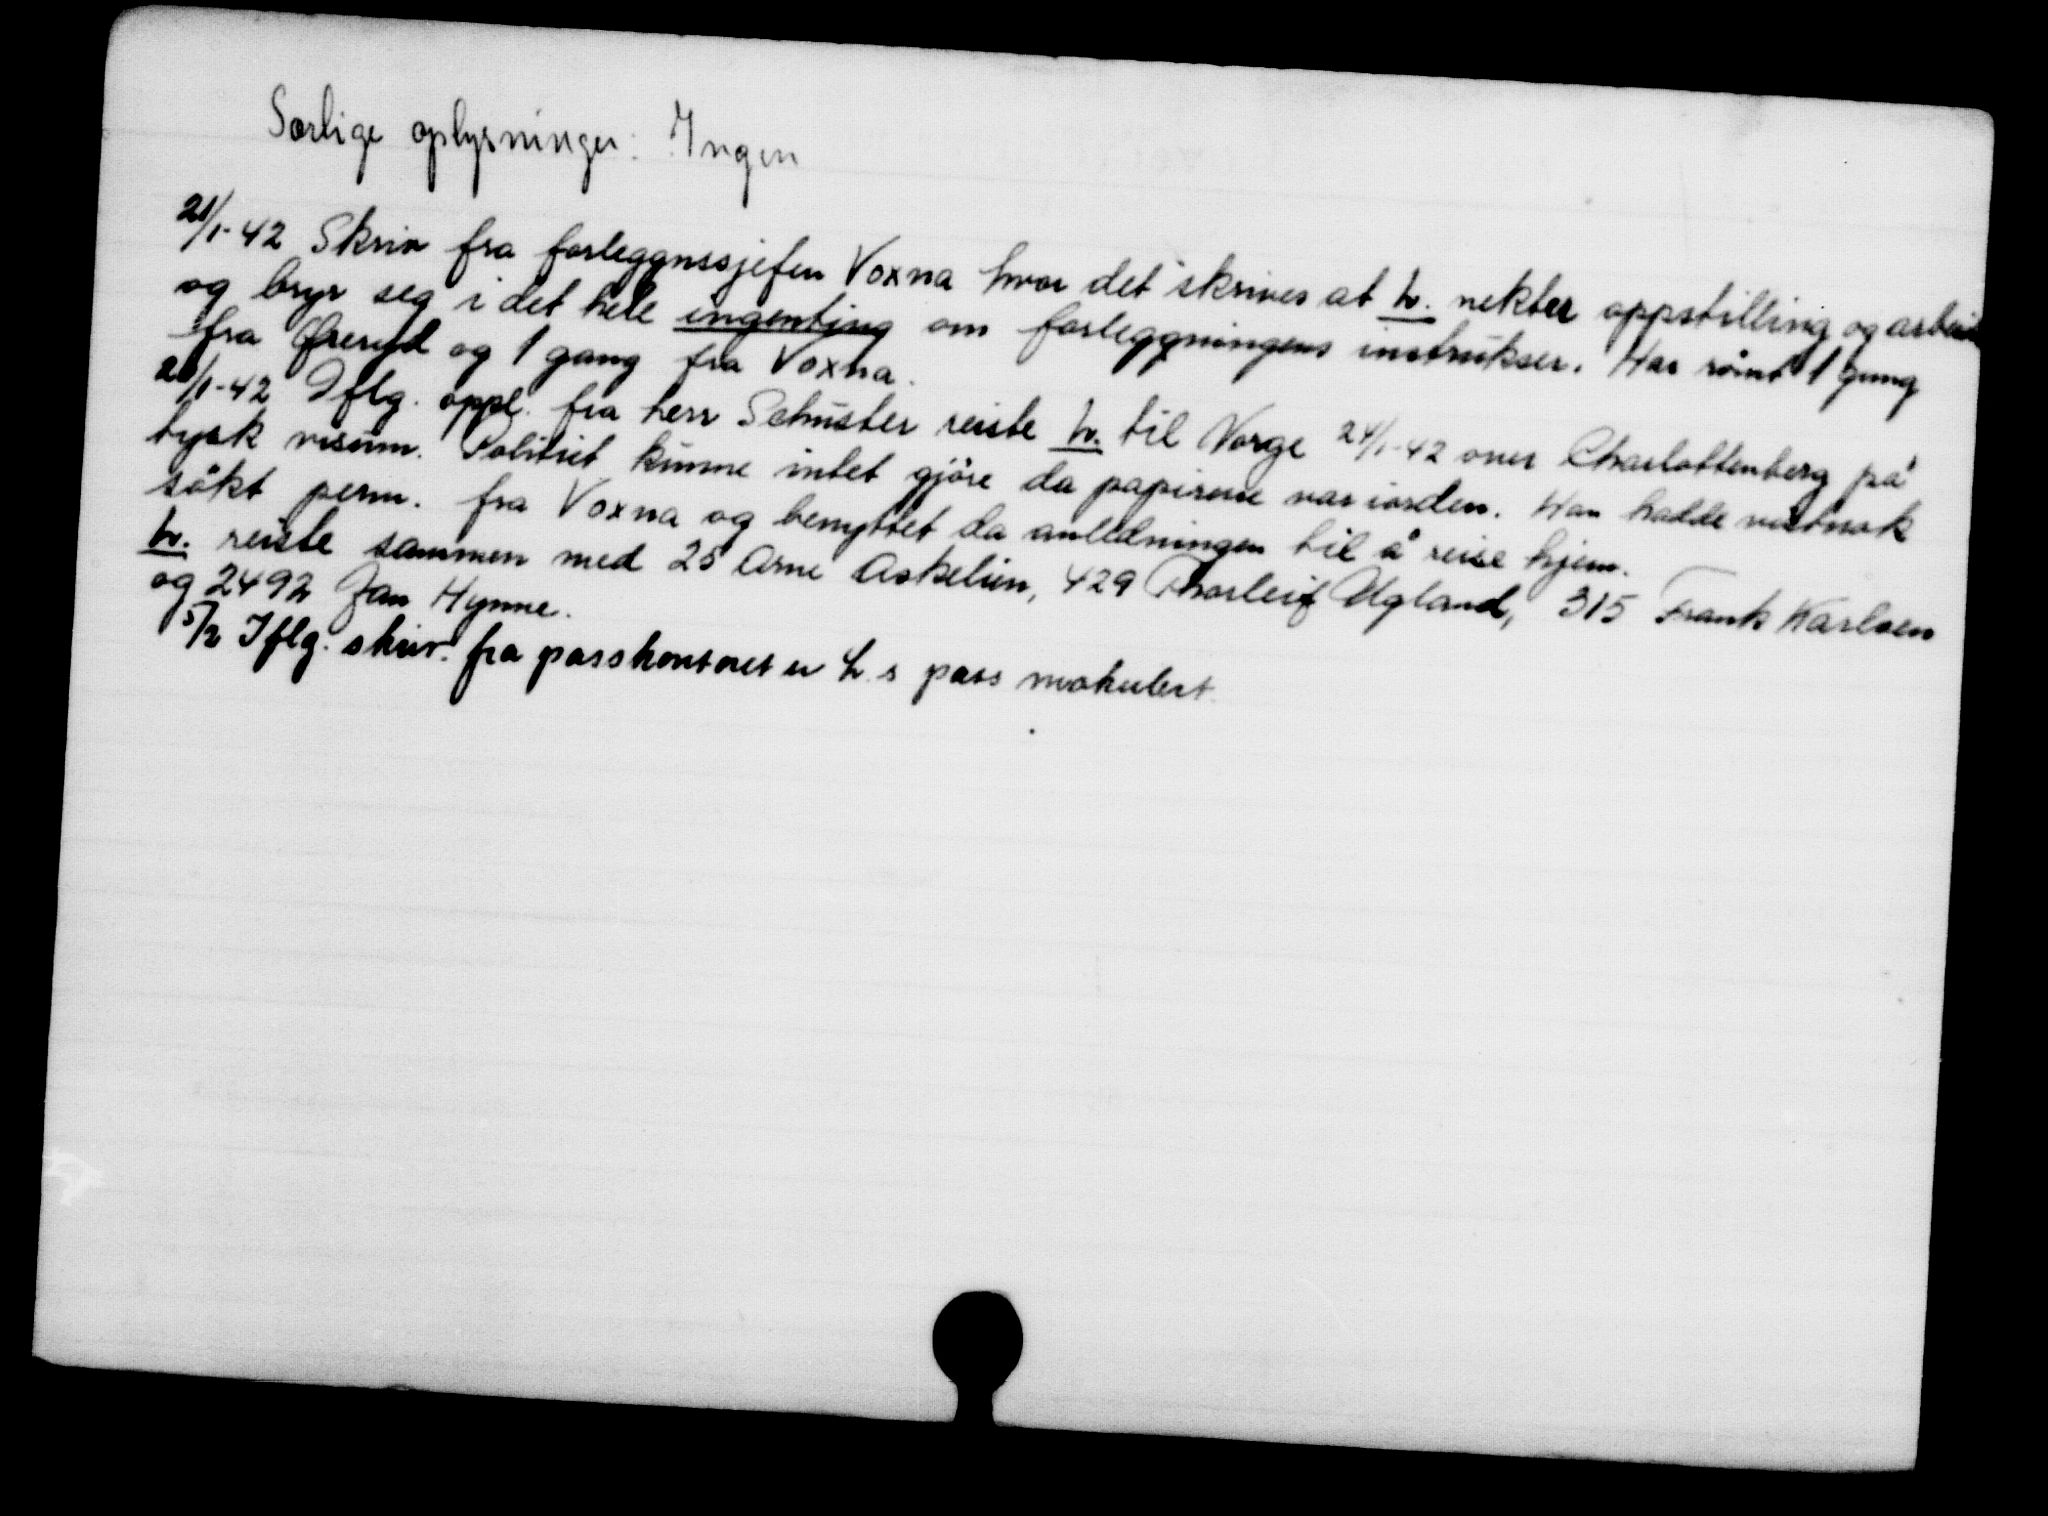 Særlige oplysninger: Ingen
21/1-42 Skriv fra forleggnssjefen Voxna hvor det skrives at h. nekter oppstilling og arbeid
og bryr seg i det hele ingenting om forleggningens instrukser. Har römt 1 gang
fra Öreryd og 1 gang fra Voxna.
/1-42 Iflg. oppl. fra herr Schuster reiste h. til Norge 24/1-42 over Charlottenberg på
tysk visum. Politiet kunne intet gjöre da papirene var iorden. Han hadde vistnok
sökt perm. fra Voxna og benyttet da anledningen til å reise hjem.
h. reiste sammen med 25 Arne Askelien, 429 Thorleif Ugland, 315 Frank Karlsen
og 2492 Jan Hynne.
5/2 Iflg. skriv. fra passkontoret er h.s pass makulert.